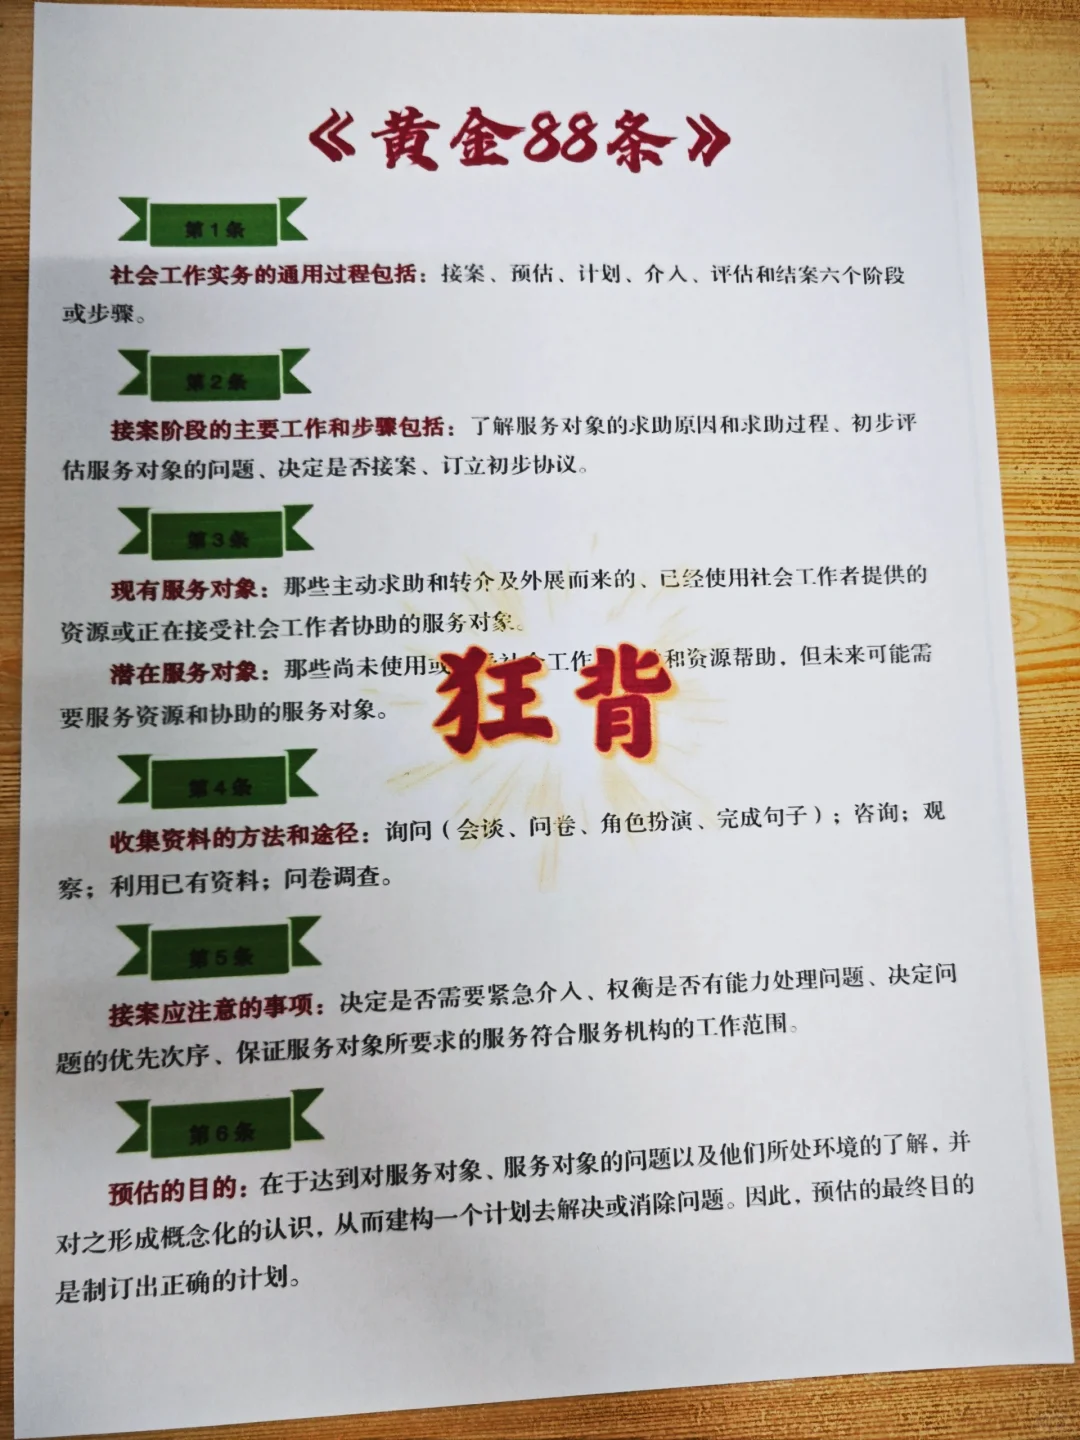 《黄金88条》
第1条
社会工作实务的通用过程包括：接案、预估、计划、介入、评估和结案六个阶段
或步骤。
第2条
接案阶段的主要工作和步骤包括：了解服务对象的求助原因和求助过程、初步评
估服务对象的问题、决定是否接案、订立初步协议。
第3条
现有服务对象：那些主动求助和转介及外展而来的、已经使用社会工作者提供的
资源或正在接受社会工作者协助的服务对象。
潜在服务对象：那些尚未使用或 社会工作 和资源帮助，但未来可能需
要服务资源和协助的服务对象。
狂背
第4条
收集资料的方法和途径：询问（会谈、问卷、角色扮演、完成句子）；咨询；观
察；利用已有资料；问卷调查。
第5条
接案应注意的事项：决定是否需要紧急介入、权衡是否有能力处理问题、决定问
题的优先次序、保证服务对象所要求的服务符合服务机构的工作范围。
第6条
预估的目的：在于达到对服务对象、服务对象的问题以及他们所处环境的了解，并
对之形成概念化的认识，从而建构一个计划去解决或消除问题。因此，预估的最终目的
是制订出正确的计划。